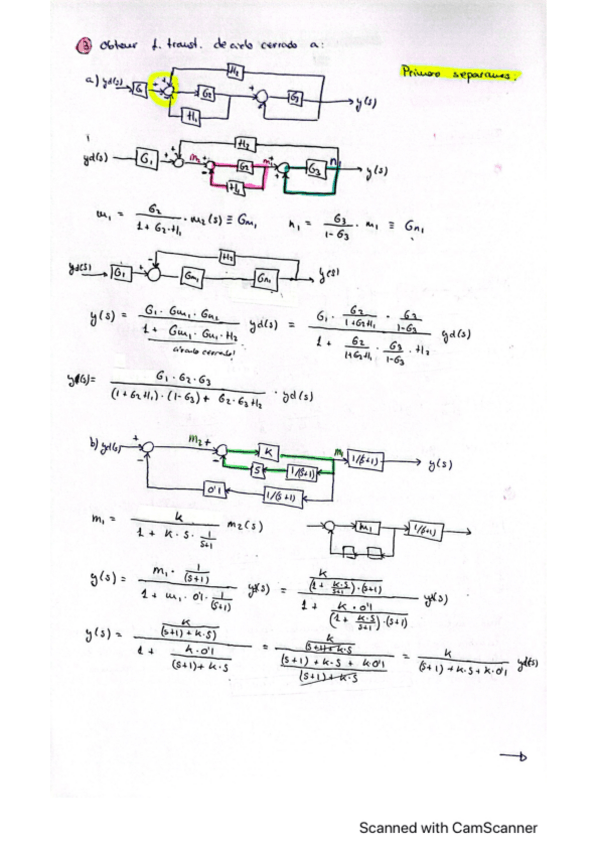 ③ Obtener f. transf. de ciclo cerrado a:
Primero separamos:
a) yd(s) G + + - H2 G2 H1 G3 y(s)
yd(s) G1 + + H2 m2 + - G2 H1 m1 + + G3 n1 y(s)
m1 = G2 / (1 + G2·H1) · m2(s) ≡ Gm1   n1 = G3 / (1 - G3) · m1 ≡ Gn1
yd(s) G1 - H2 Gm1 Gn1 y(s)
y(s) = (G1 · Gm1 · Gn1) / (1 + Gm1 · Gn1 · H2) yd(s) = (G1 · G2/(1+G2H1) · G3/(1-G3)) / (1 + G2/(1+G2H1) · G3/(1-G3) · H2) yd(s)
y(s) = (G1 · G2 · G3) / ((1+G2H1)·(1-G3) + G2·G3·H2) · yd(s)
b) yd(s) + - m2 + - K S 1/(s+1) m1 1/(s+1) y(s)
0'1 1/(s+1)
m1 = K / (1 + K·S· 1/(s+1)) m2(s)   m1 1/(s+1)
y(s) = (m1 · 1/(s+1)) / (1 + m1 · 0'1 · 1/(s+1)) yd(s) = (K / ((1 + K·S/(s+1))·(s+1))) / (1 + K·0'1 / ((1 + K·S/(s+1))·(s+1))) yd(s)
y(s) = (K / ((s+1)+K·S)) / (1 + K·0'1 / ((s+1)+K·S)) = (K / ((s+1)+K·S)) / (((s+1)+K·S+K·0'1) / ((s+1)+K·S)) = K / ((s+1)+K·S+K·0'1) yd(s)
→
Scanned with CamScanner